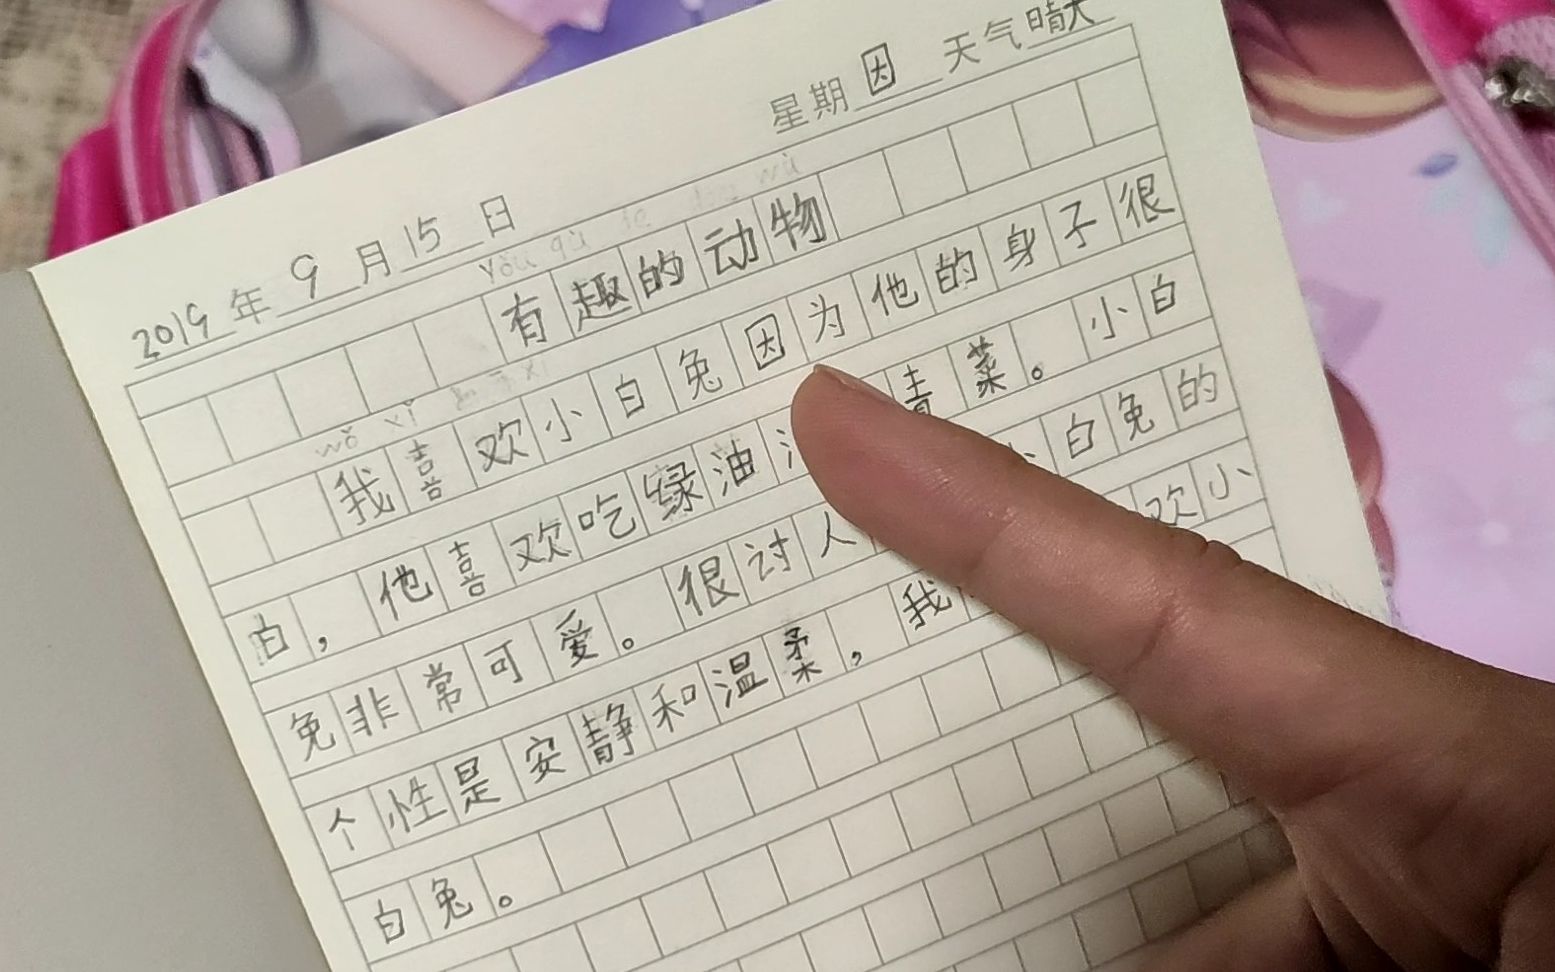 星期因 天气晴天
2019年9月15日
yǒu qù de dòng wù
有趣的动物
wǒ xǐ
我喜欢小白兔因为他的身子很
白，他喜欢吃绿油 青菜。小白
兔非常可爱。很讨人 小白兔的
个性是安静和温柔，我 欢小
白兔。